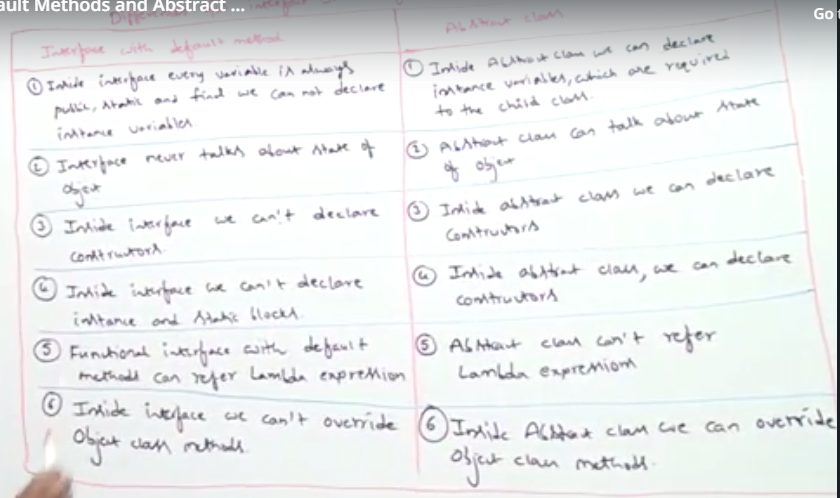 ault Methods and Abstract ...
Go
Interface with default method
Abstract class
① Inside interface every variable is always
public, static and final we can not declare
instance variables.
① Inside Abstract class we can declare
instance variables, which are required
to the child class.
② Interface never talks about state of
Object
② Abstract class can talk about state
of object
③ Inside interface we can't declare
constructors.
③ Inside abstract class we can declare
Constructors
④ Inside interface we can't declare
instance and static blocks.
④ Inside abstract class, we can declare
constructors
⑤ Functional interface with default
methods can refer Lambda expression
⑤ Abstract class can't refer
Lambda expressions
⑥ Inside interface we can't override
Object class methods.
⑥ Inside Abstract class we can override
Object class methods.